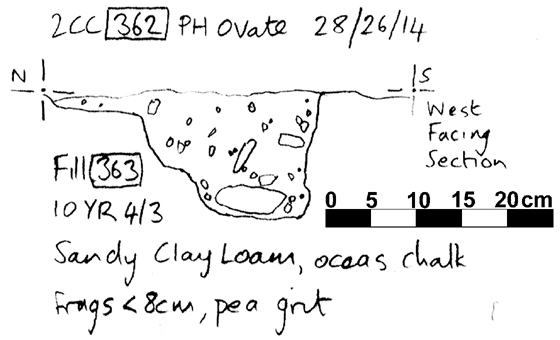 2CC 362 PH Ovate 28/26/14
N
S
West
Facing
Section
Fill 363
10 YR 4/3
0 5 10 15 20cm
Sandy Clay Loam, occas chalk
frags <8cm, pea grit